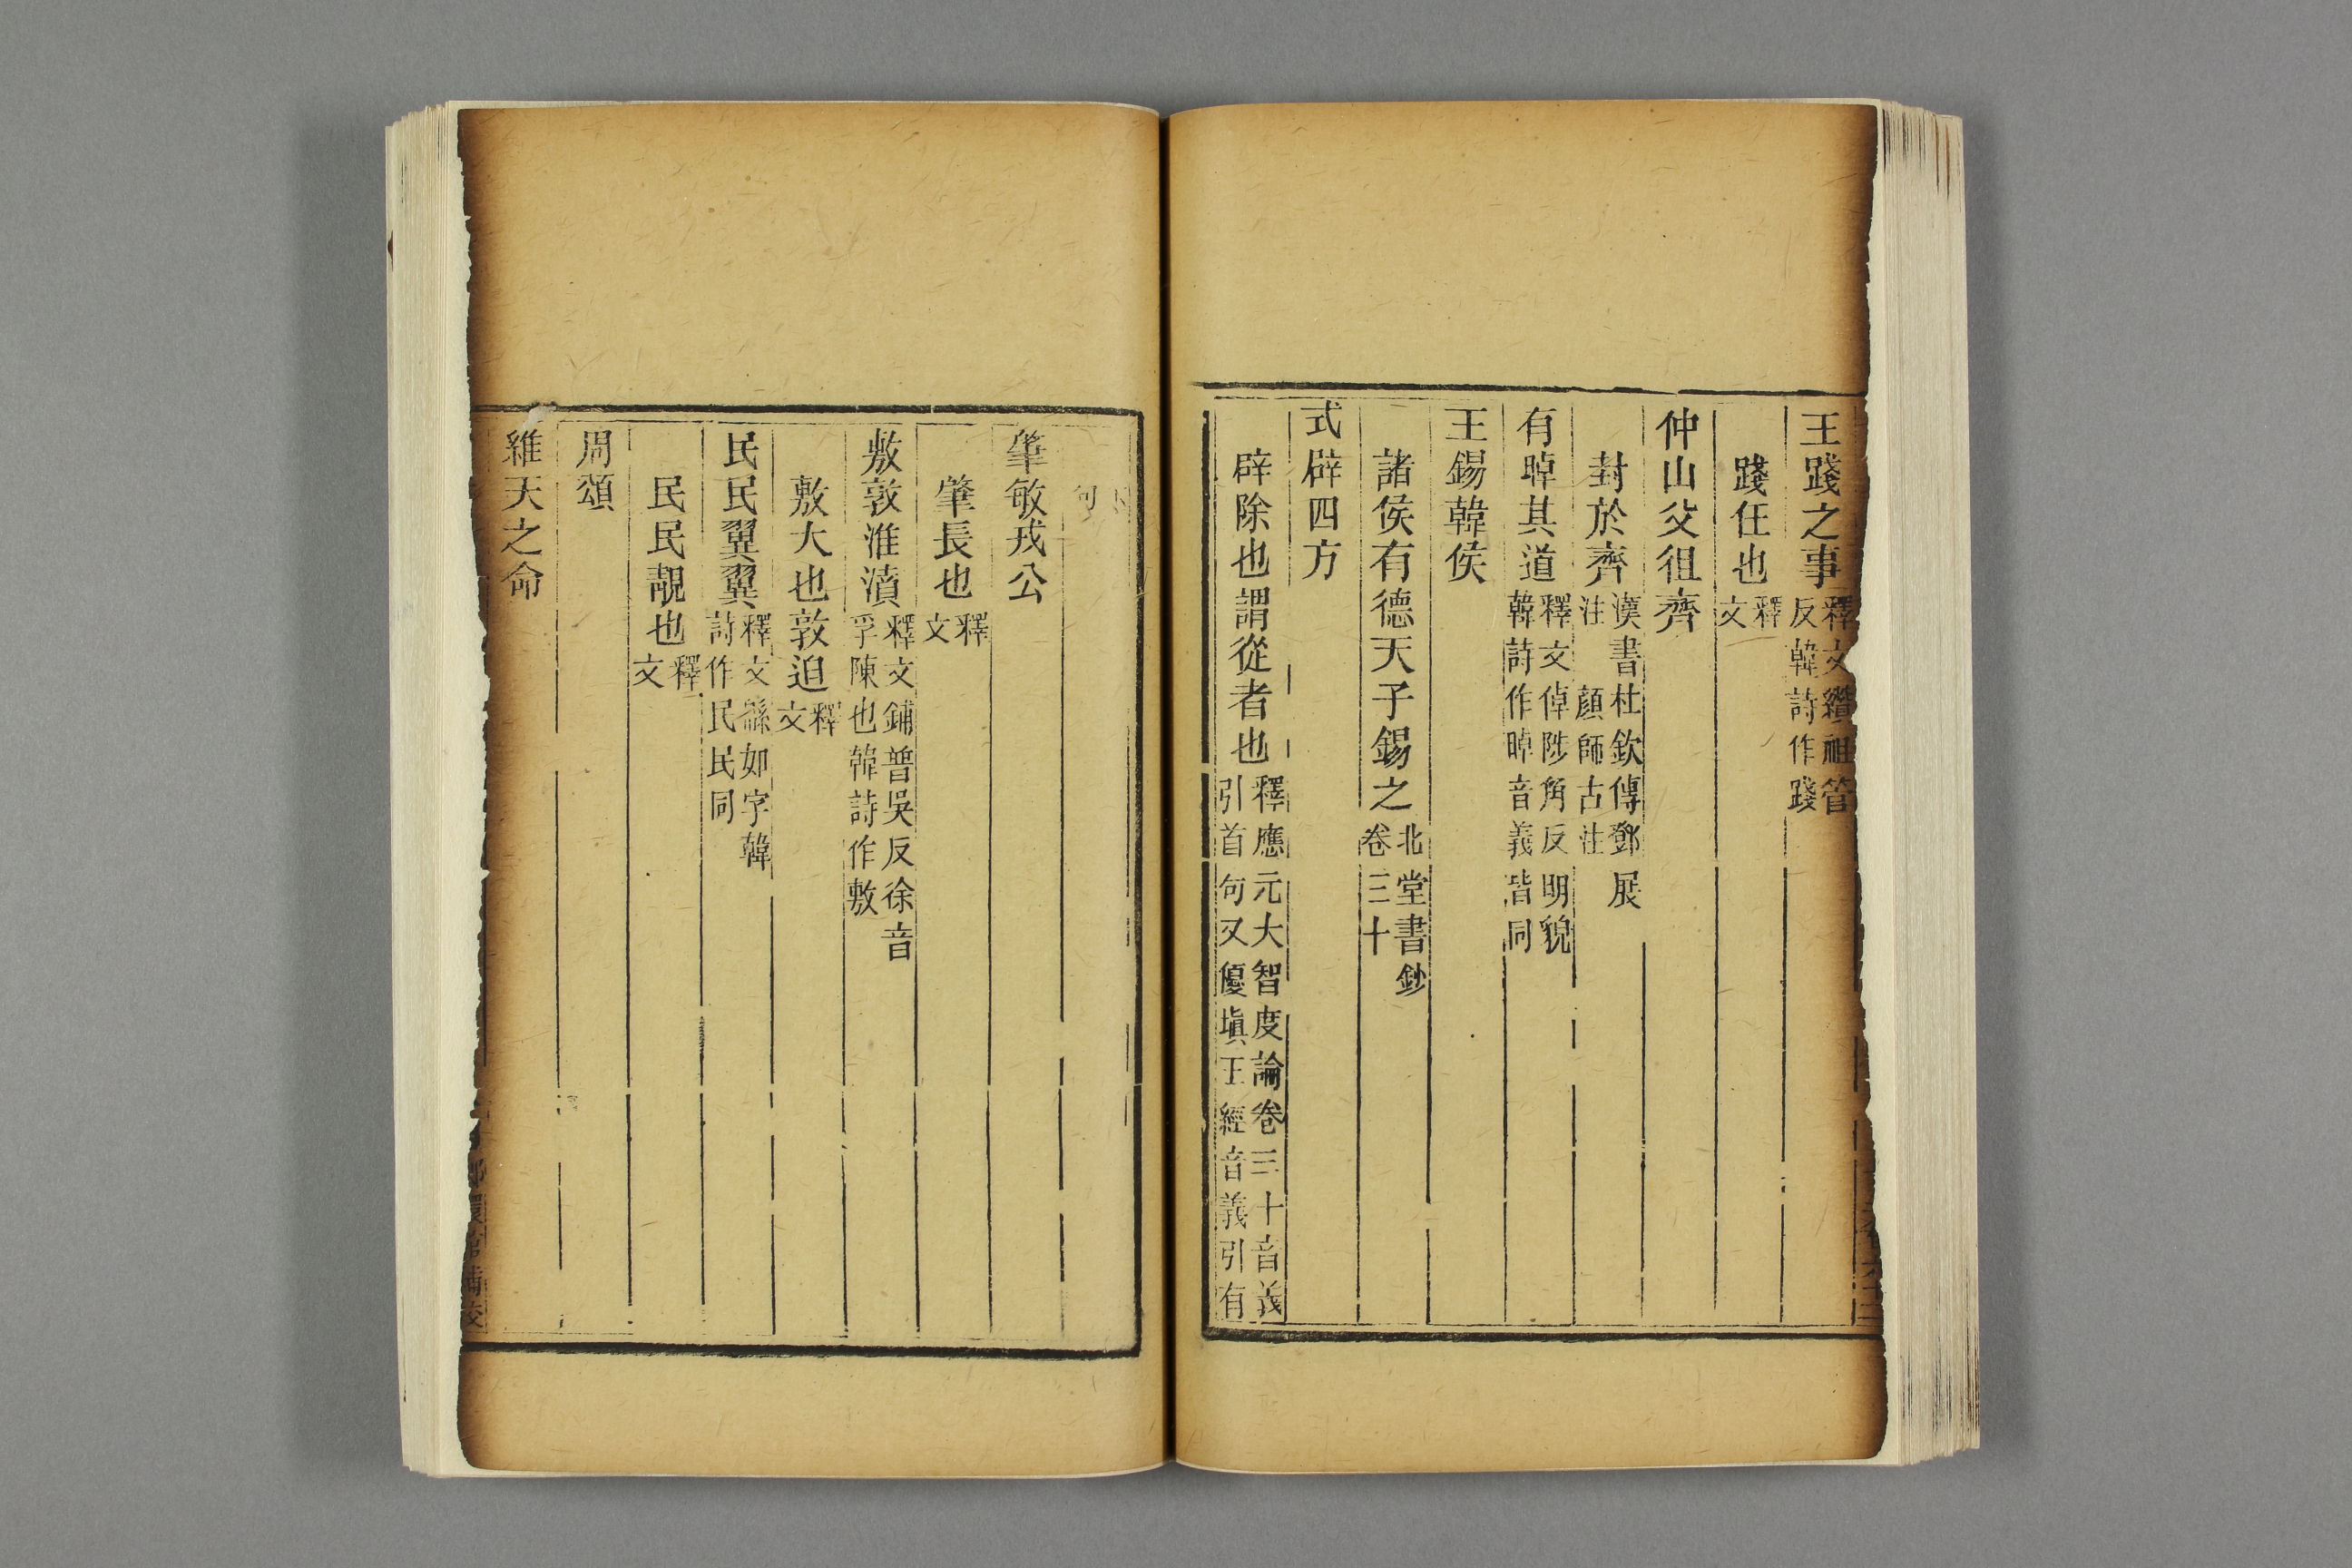 王踐之事釋文纘祖管反韓詩作踐
踐任也釋文
仲山父徂齊
封於齊漢書杜欽傳鄧展注 顏師古注
有晫其道釋文倬陟角反明貌韓詩作晫音義皆同
王錫韓侯
諸侯有德天子錫之北堂書鈔卷三十
式辟四方
辟除也謂從者也釋應元大智度論卷三十音義引首句又優塡王經音義引有
句
肇敏戎公
肇長也釋文
敷敦淮濆釋文鋪普吳反徐音孚陳也韓詩作敷
敷大也敦迫釋文
民民翼翼釋文緜如字韓詩作民民同
民民靚也釋文
周頌
維天之命